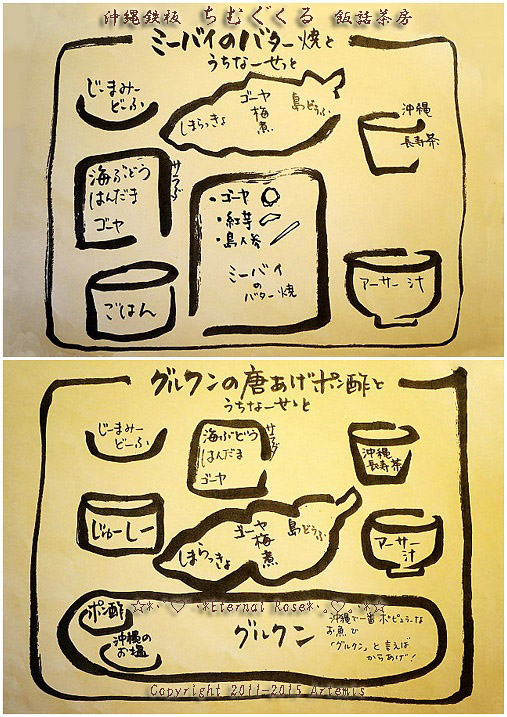 沖縄鉄板 ちむぐくる 飯話茶房
ミーバイのバター焼と
うちなーせっと
じーまみー
どーふ
ゴーヤ
梅
煮
島どうふ
しまらっきょ
沖縄
長寿茶
海ぶどう
はんだま
ゴーヤ
サラダ
・ゴーヤ
・紅芋
・島人参
ミーバイ
の
バター焼
ごはん
アーサー汁
グルクンの唐あげポン酢と
うちなーせっと
じーまみー
どーふ
海ぶどう
はんだま
ゴーヤ
サラダ
沖縄
長寿茶
じゅーしー
ゴーヤ
梅
煮
島どうふ
しまらっきょ
アーサー
汁
ポン酢
沖縄の
お塩
グルクン
沖縄で一番ポピュラーな
お魚で
「グルクン」と言えば
からあげ!
☆*・゜♡・*Eternal Rose*・。♡。・*☆
Copyright 2011-2015 Artemis